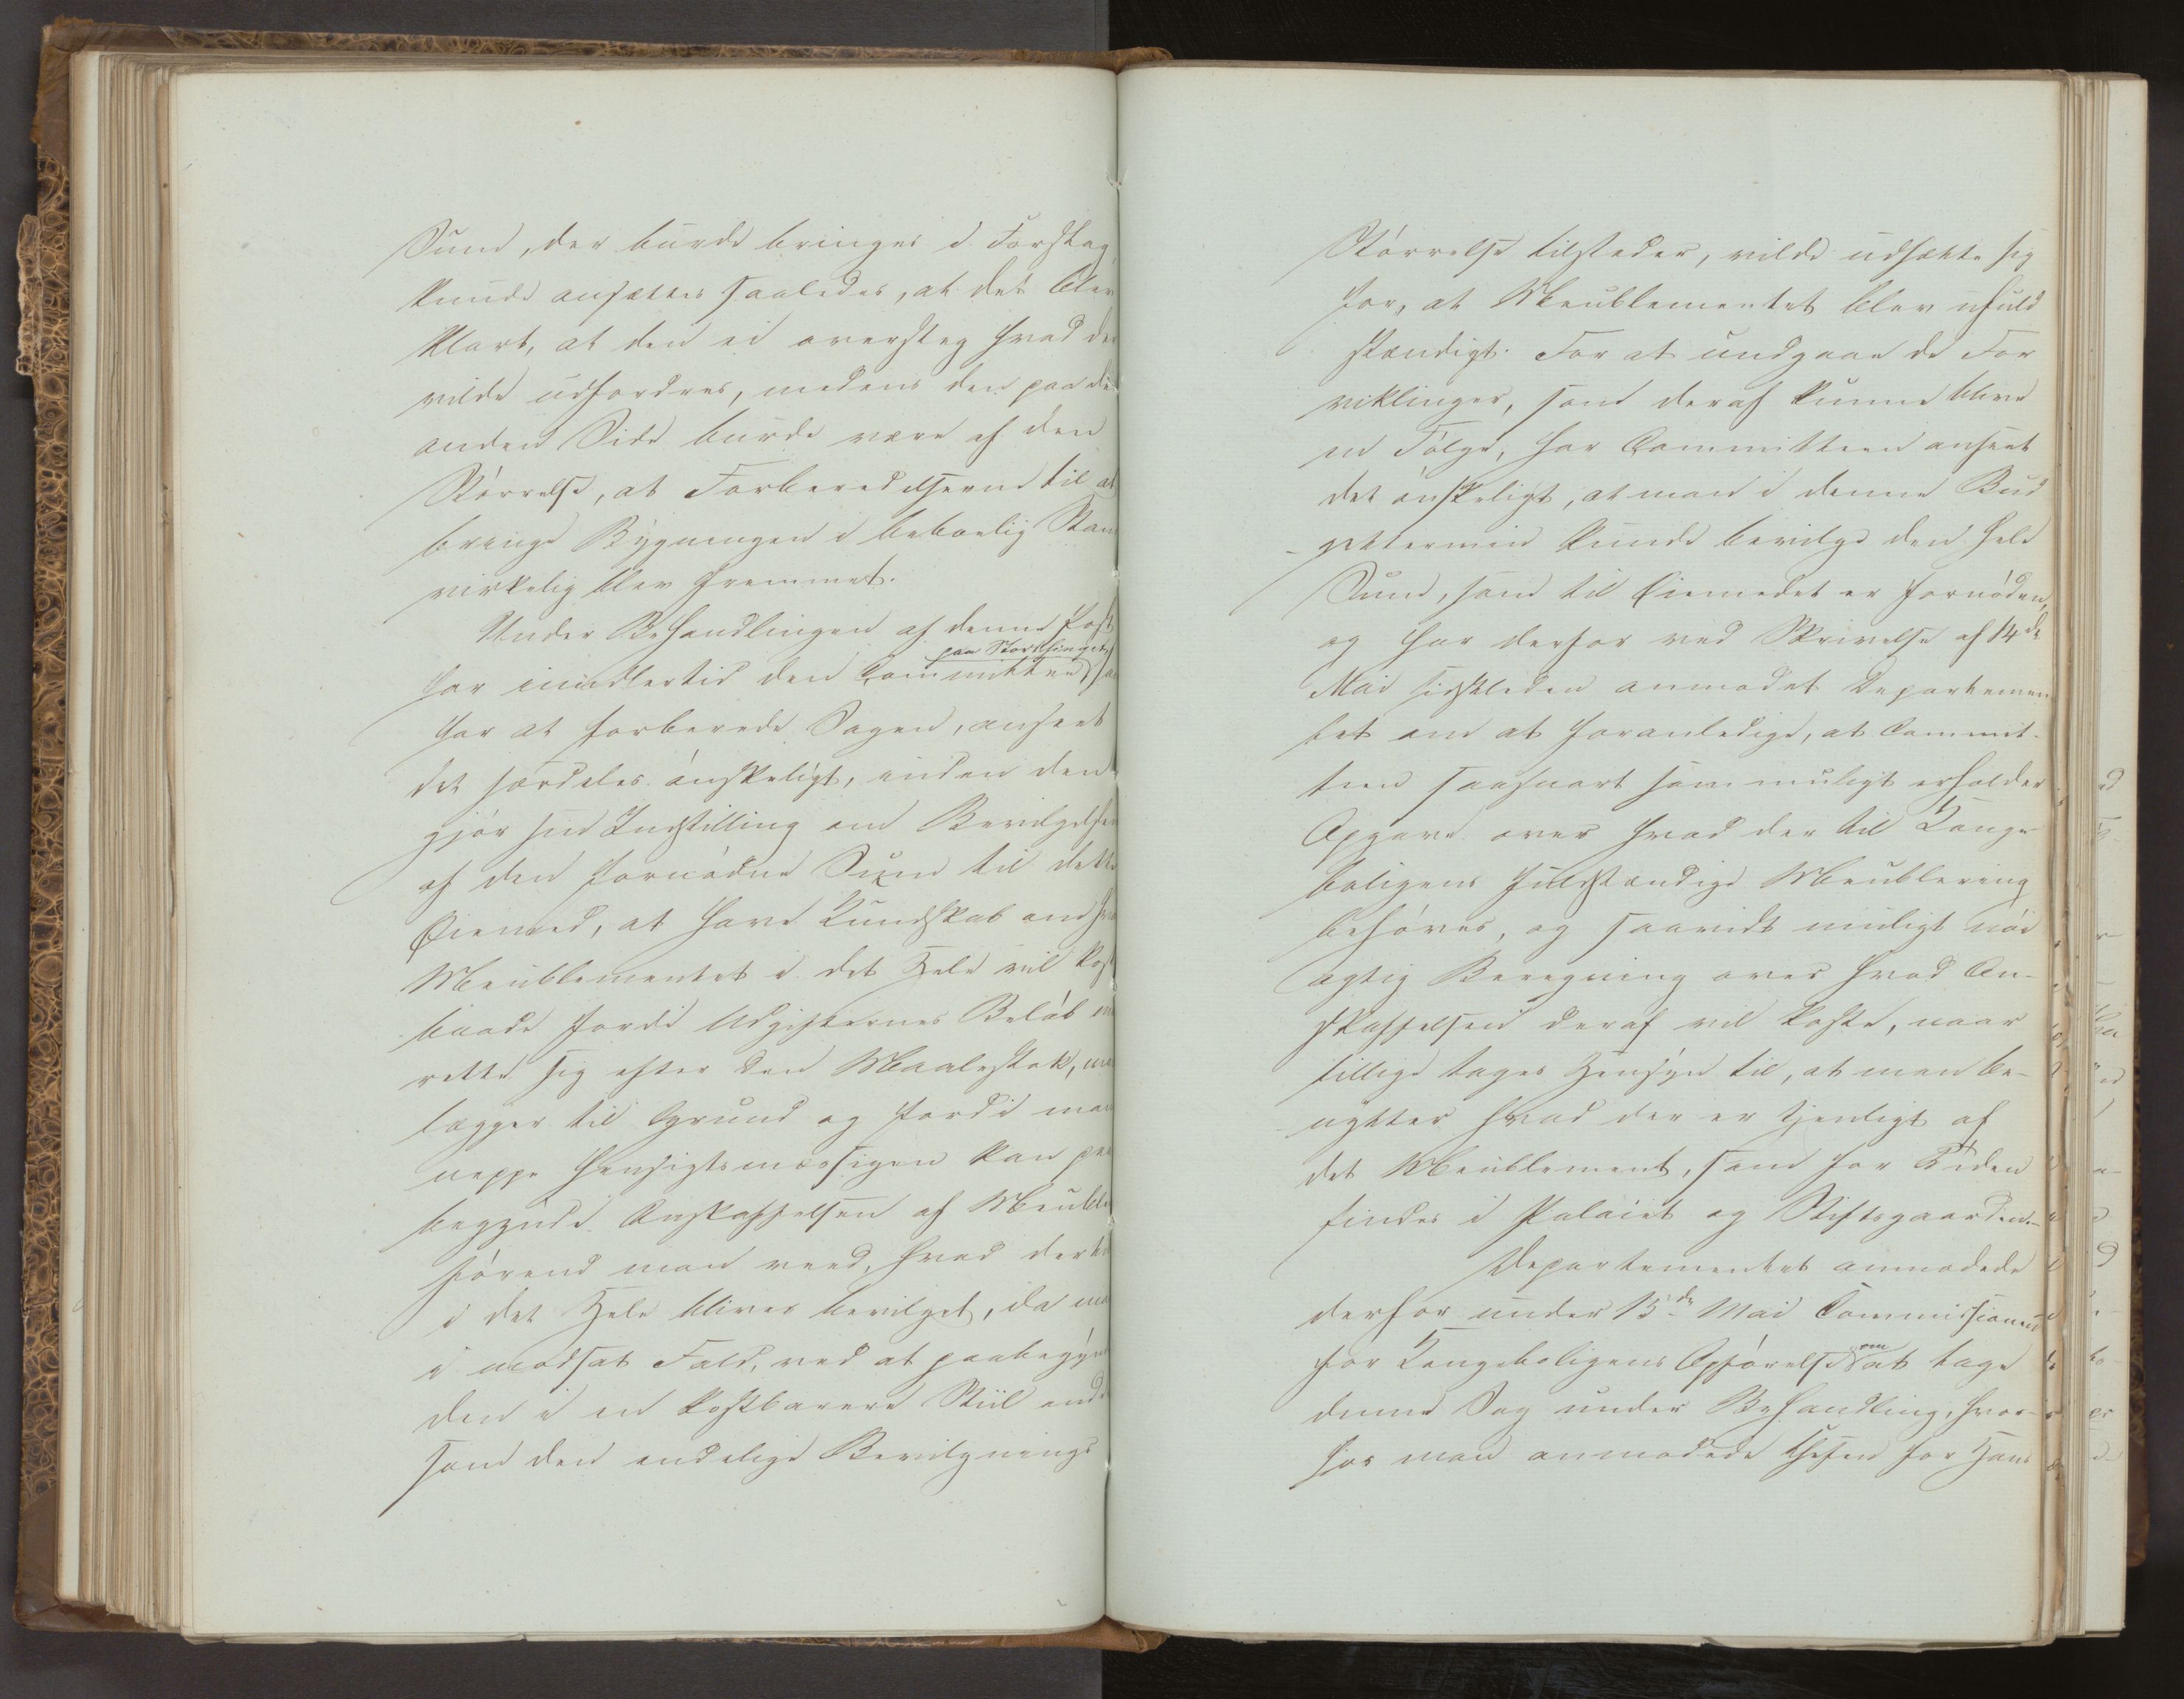 Sum, der burde bringes i Forslag,
kunde ansættes saaledes, at det blev
klart, at den ei oversteg hvad der
vilde udfordres, medens den paa den
anden Side burde være af den
Størrelse, at Forberedelserne til at
bringe Bygningen i beboelig Stan
virkelig blev fremmet.
Under Behandlingen af denne Post
paa Storthinget
har imidlertid den Committee,
har at forberede Sagen, anseet
det særdeles ønskeligt, inden den
gjør sin Indstilling om Bevilgelsen
af den fornødne Sum til dette
Øiemed, at have Kundskab om
Meublementet i det Hele vil kost
baade fordi Udgifternes Beløb
rette sig efter den Maalestok,
lægger til Grund og fordi man
neppe hensigtsmæssigen kan
begynde Anskaffelsen af Meuble
førend man veed, hvad der
i det Hele bliver bevilget, da man
i modsat Fald, ved at paabegyn
den i en kostbarere Stiil end
som den endelige Bevilgnings
Størrelse tilsteder, vilde udsætte sig
for, at Meublementet blev ufuld
stændigt. For at undgaae de For
viklinger, som deraf kunne blive
en Følge, har Committeen anseet
det ønskeligt, at man i denne Bud
getttermin kunde bevilge den hele
Sum, som til Øiemedet er fornøden,
og har derfor ved Skrivelse af 14de
Mai sidstleden anmodet Departemen
tet om at foranledige, at Commit-
teen saasnart som muligt erholder
Opgave over hvad der til Konge
boligens fuldstændige Meublering
behøves, og saavidt muligt nøi
agtig Beregning over hvad An-
skaffelsen deraf vil koste, naar
tillige tages Hensyn til, at man be-
nytter hvad der er tjenligt af
det Meublement, som for Tiden
findes i Palaiet og Stiftsgaarden.-
Departementet anmodede
derfor under 15de Mai Commissionen
om
for Kongeboligens Opførelse at tage
denne Sag under Behandling, hvor-
hos man anmodede Chefen for Hans